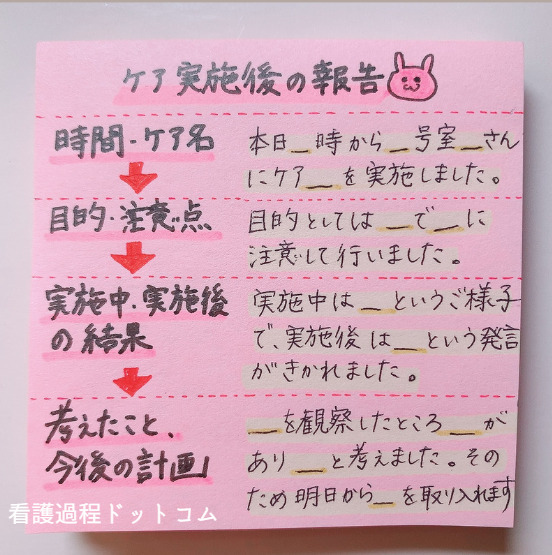 ケア実施後の報告
時間・ケア名
本日＿時から＿号室＿さん
にケア＿を実施しました。
目的・注意点
目的としては＿で＿に
注意して行いました。
実施中・実施後
の結果
実施中は＿というご様子
で、実施後は＿という発言
がきかれました。
考えたこと、
今後の計画
＿を観察したところ＿が
あり＿と考えました。その
ため明日から＿を取り入れます
看護過程ドットコム